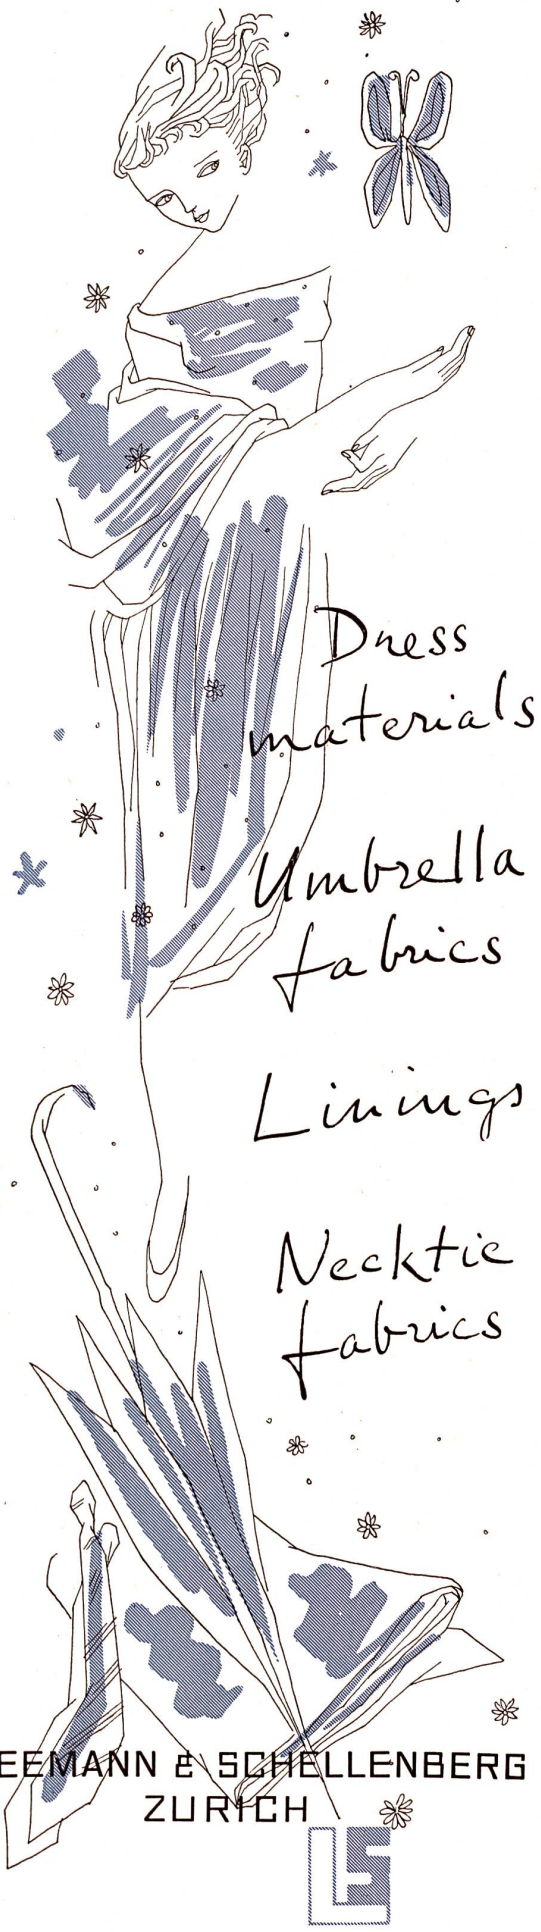 Dress
materials
Umbrella
fabrics
Linings
Necktie
fabrics
EEMANN & SCHELLENBERG
ZURICH
LS